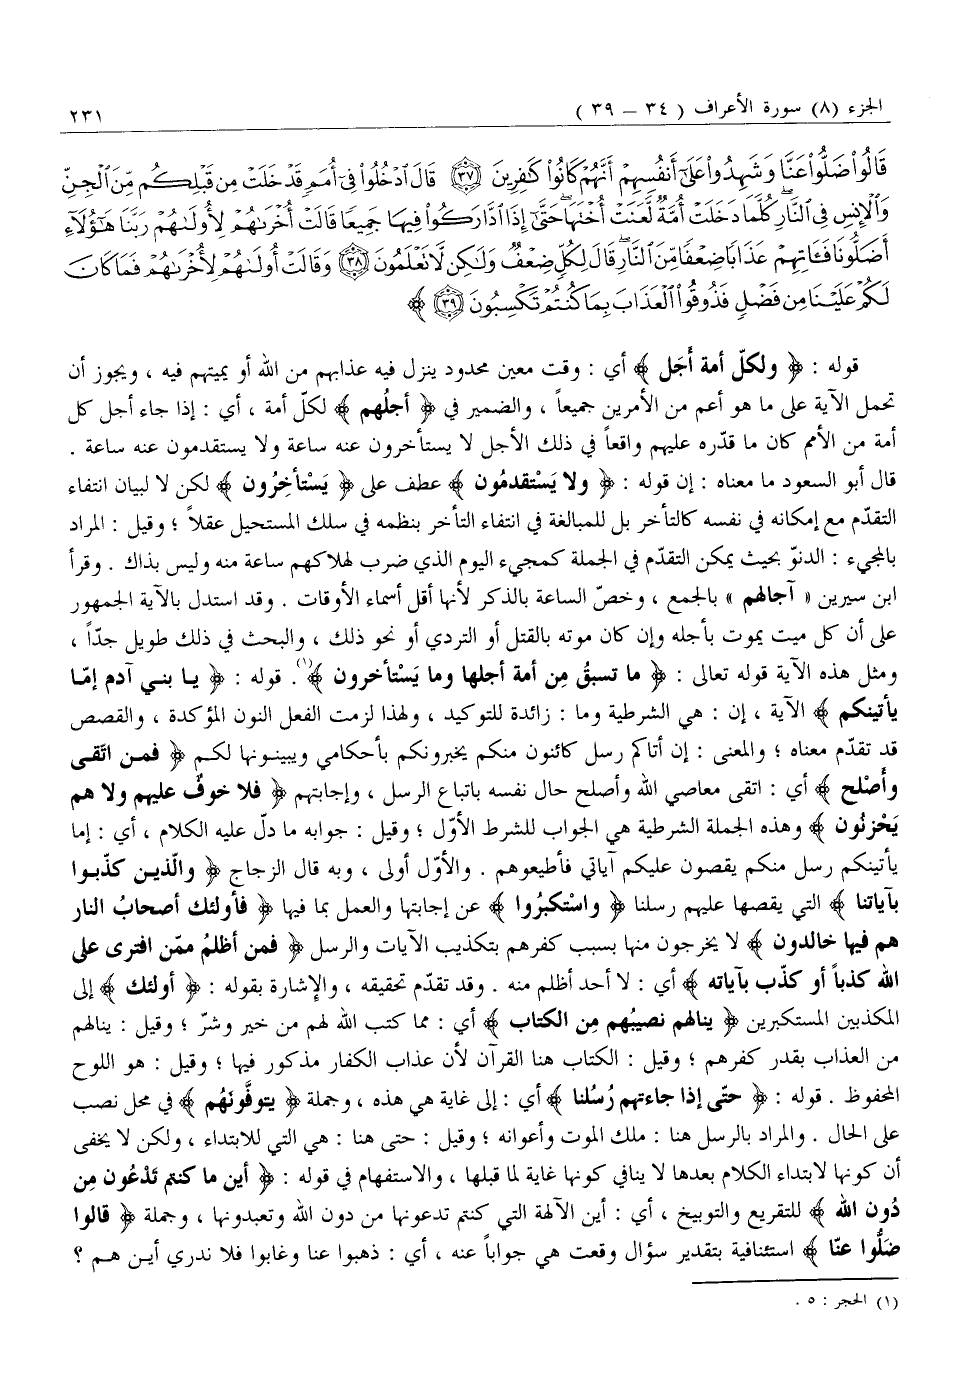 الجزء (٨) سورة الأعراف ( ٣٤ – ٣٩ ) ٢٣١
قَالُوا۟ ضَلُّوا۟ عَنَّا وَشَهِدُوا۟ عَلَىٰٓ أَنفُسِهِمْ أَنَّهُمْ كَانُوا۟ كَـٰفِرِينَ ﴿٣٧﴾ قَالَ ٱدْخُلُوا۟ فِىٓ أُمَمٍ قَدْ خَلَتْ مِن قَبْلِكُم مِّنَ ٱلْجِنِّ
وَٱلْإِنسِ فِى ٱلنَّارِ كُلَّمَا دَخَلَتْ أُمَّةٌ لَّعَنَتْ أُخْتَهَا حَتَّىٰٓ إِذَا ٱدَّارَكُوا۟ فِيهَا جَمِيعًا قَالَتْ أُخْرَىٰهُمْ لِأُولَىٰهُمْ رَبَّنَا هَـٰٓؤُلَآءِ
أَضَلُّونَا فَـَٔاتِهِمْ عَذَابًا ضِعْفًا مِّنَ ٱلنَّارِ قَالَ لِكُلٍّ ضِعْفٌ وَلَـٰكِن لَّا تَعْلَمُونَ ﴿٣٨﴾ وَقَالَتْ أُولَىٰهُمْ لِأُخْرَىٰهُمْ فَمَا كَانَ
لَكُمْ عَلَيْنَا مِن فَضْلٍ فَذُوقُوا۟ ٱلْعَذَابَ بِمَا كُنتُمْ تَكْسِبُونَ ﴿٣٩﴾ ﴾
قوله : ﴿ ولكلّ أمة أَجَل ﴾ أي : وقت معين محدود ينزل فيه عذابهم من الله أو يميتهم فيه ، ويجوز أن
تحمل الآية على ما هو أعم من الأمرين جميعاً ، والضمير في ﴿ أجلُهم ﴾ لكلّ أمة ، أي : إذا جاء أجل كل
أمة من الأمم كان ما قدّره عليهم واقعاً في ذلك الأجل لا يستأخرون عنه ساعة ولا يستقدمون عنه ساعة .
قال أبو السعود ما معناه : إن قوله : ﴿ ولا يَسْتقدمُون ﴾ عطف على ﴿ يَسْتأخِرُون ﴾ لكن لا لبيان انتفاء
التقدّم مع إمكانه في نفسه كالتأخر بل للمبالغة في انتفاء التأخر بنظمه في سلك المستحيل عقلاً ؛ وقيل : المراد
بالمجيء : الدنوّ بحيث يمكن التقدّم في الجملة كمجيء اليوم الذي ضرب لهلاكهم ساعة منه وليس بذاك . وقرأ
ابن سيرين « آجالهم » بالجمع ، وخصّ الساعة بالذكر لأنها أقل أسماء الأوقات . وقد استدل بالآية الجمهور
على أن كل ميت يموت بأجله وإن كان موته بالقتل أو التردي أو نحو ذلك ، والبحث في ذلك طويل جدّاً ،
ومثل هذه الآية قوله تعالى : ﴿ ما تسبقُ مِن أمة أجلها وما يَسْتأخرون ﴾(١). قوله : ﴿ يـا بنـي آدم إمّـا
يأتينكم ﴾ الآية ، إن : هي الشرطية وما : زائدة للتوكيد ، ولهذا لزمت الفعل النون المؤكدة ، والقصص
قد تقدّم معناه ؛ والمعنى : إن أتاكم رسل كائنون منكم يخبرونكم بأحكامي ويبينونها لكم ﴿ فمـن اتّقـى
وأَصْلح ﴾ أي : اتقى معاصي الله وأصلح حال نفسه باتباع الرسل ، وإجابتهم ﴿ فلا خوفٌ عليهم ولا هم
يَحْزنُون ﴾ وهذه الجملة الشرطية هي الجواب للشرط الأوّل ؛ وقيل : جوابه ما دلّ عليه الكلام ، أي : إما
يأتينكم رسل منكم يقصون عليكم آياتي فأطيعوهم . والأوّل أولى ، وبه قال الزجاج ﴿ والّذيـن كذّبـوا
بآياتنا ﴾ التي يقصها عليهم رسلنا ﴿ واسْتكبرُوا ﴾ عن إجابتها والعمل بما فيها ﴿ فأولئك أصحابُ النار
هم فيها خالدون ﴾ لا يخرجون منها بسبب كفرهم بتكذيب الآيات والرسل ﴿ فمن أظلمُ ممّن افترى على
الله كذباً أو كذّب بآياته ﴾ أي : لا أحد أظلم منه . وقد تقدّم تحقيقه ، والإشارة بقوله : ﴿ أولئك ﴾ إلى
المكذبين المستكبرين ﴿ ينالهم نصيبُهم مِن الكتاب ﴾ أي : مما كتب الله لهم من خير وشرّ ؛ وقيل : ينالهم
من العذاب بقدر كفرهم ؛ وقيل : الكتاب هنا القرآن لأن عذاب الكفار مذكور فيها ؛ وقيل : هو اللوح
المحفوظ . قوله : ﴿ حتّى إذا جاءتهم رُسُلنا ﴾ أي : إلى غاية هي هذه ، وجملة ﴿ يتوفَّونَهُم ﴾ في محل نصب
على الحال . والمراد بالرسل هنا : ملك الموت وأعوانه ؛ وقيل : حتى هنا : هي التي للابتداء ، ولكن لا يخفى
أن كونها لابتداء الكلام بعدها لا ينافي كونها غاية لما قبلها ، والاستفهام في قوله : ﴿ أين ما كنتم تَدْعُون مِن
دُون الله ﴾ للتقريع والتوبيخ ، أي : أين الآلهة التي كنتم تدعونها من دون الله وتعبدونها ، وجملة ﴿ قالوا
ضَلُّوا عنّا ﴾ استئنافية بتقدير سؤال وقعت هي جواباً عنه ، أي : ذهبوا عنا وغابوا فلا ندري أيـن هـم ؟
(١) الحجر : ٥ .